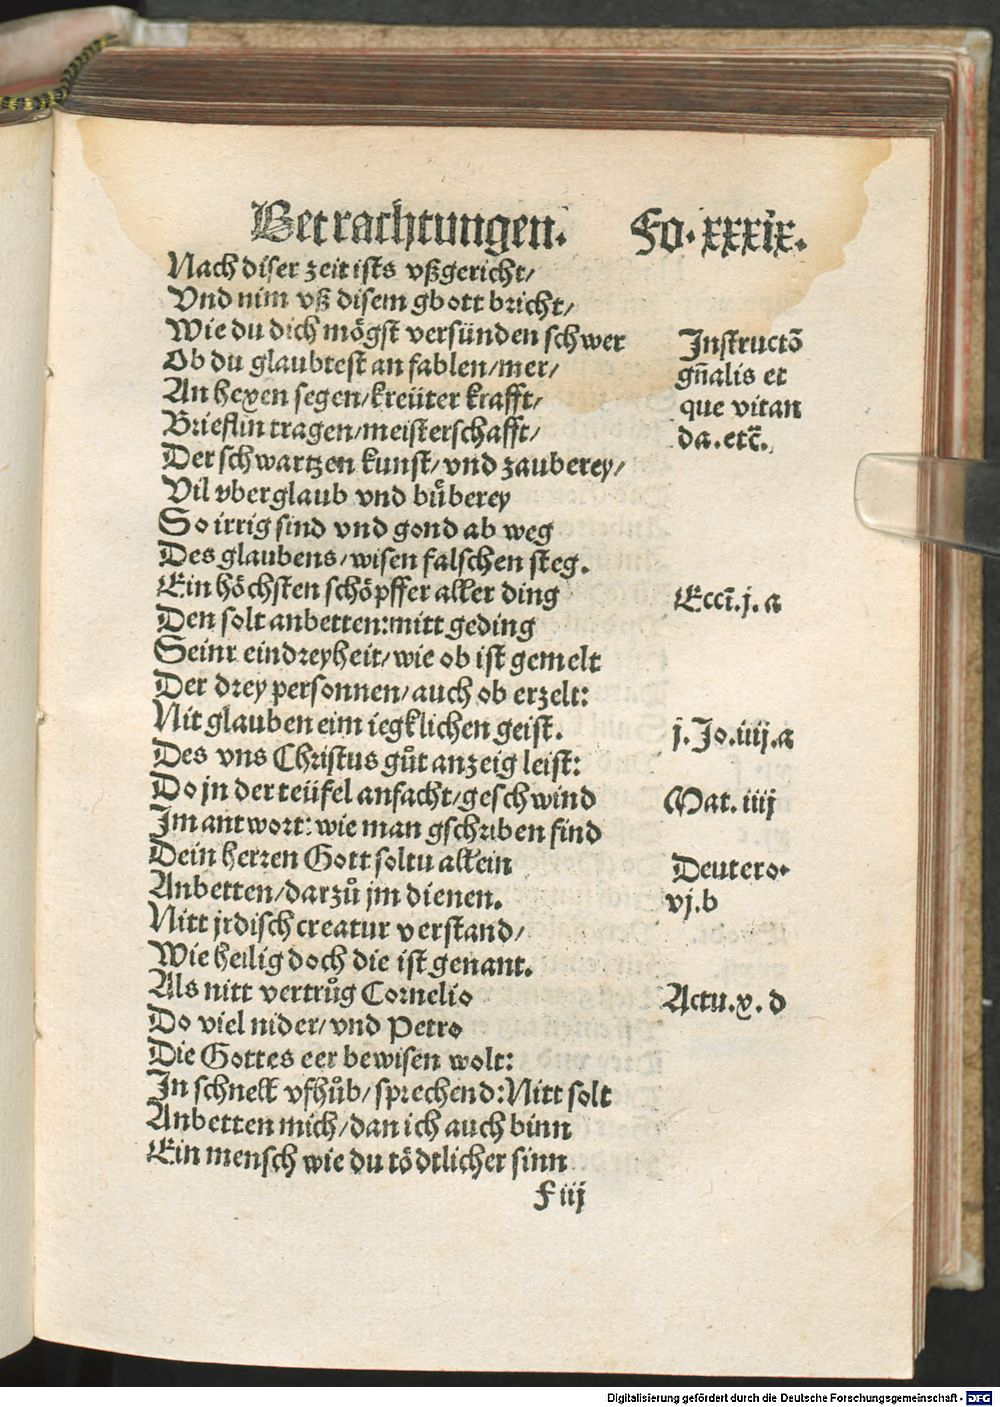 Betrachtungen. Fo. xxxix.
Nach diser zeit ists vßgericht/
Vnd nim vß disem gbott bricht/
Wie du dich mögst versünden schwer
Instructō
Ob du glaubtest an fablen/mer/
gn̄alis et
An hexen segen/kreüter krafft/
que vitan
Brieflin tragen/meisterschafft/
da.etc̄.
Der schwartzen kunst/vnd zauberey/
Vil vberglaub vnd bůberey
So irrig sind vnd gond ab weg
Des glaubens/wisen falschen steg.
Ein höchsten schöpffer aller ding
Eccī.j.a
Den solt anbetten:mitt geding
Seinr eindreyheit/wie ob ist gemelt
Der drey personnen/auch ob erzelt:
Nit glauben eim iegklichen geist.
j.Jo.iiij.a
Des vns Christus gůt anzeig leist:
Do jn der teüfel anfacht/geschwind
Mat.iiij
Im antwort:wie man gschriben find
Dein herren Gott soltu allein
Deutero.
Anbetten/darzů jm dienen.
vj.b
Nitt jrdisch creatur verstand/
Wie heilig doch die ist genant.
Als nitt vertrůg Cornelio
Actu.x.d
Do viel nider/vnd Petro
Die Gottes eer bewisen wolt:
In schnell vfhůb/sprechend:Nitt solt
Anbetten mich/dan ich auch binn
Ein mensch wie du tödtlicher sinn
F iij
Digitalisierung gefördert durch die Deutsche Forschungsgemeinschaft - DFG